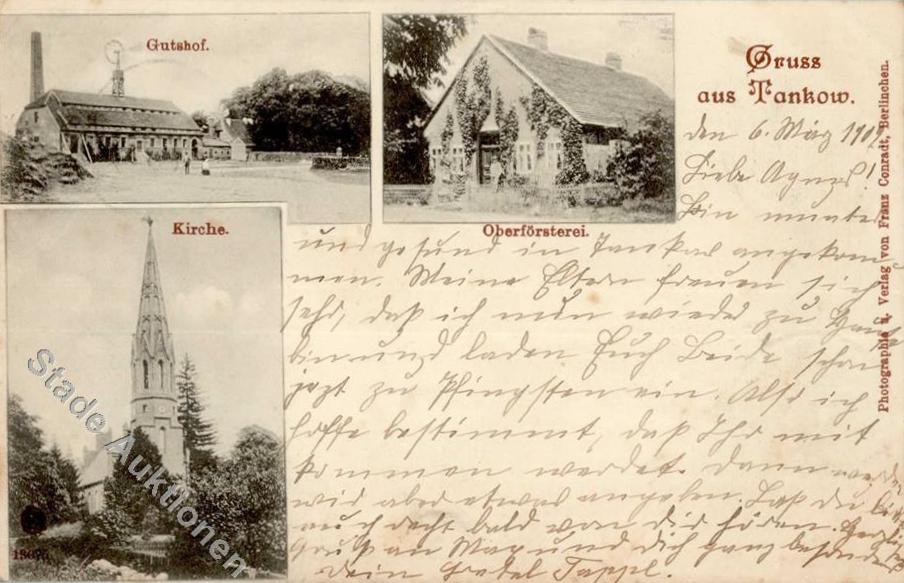 Gutshof.
Gruss
aus Tankow.
Kirche.
Oberförsterei.
den 6. März 190
Liebe Agnes!
Bin munter
und gesund in Tankow angekom
men. Meine Eltern freuen sich
sehr, daß ich nun wieder zu Haus
bin und laden Euch Beide schon
jetzt zu Pfingsten ein. Also ich
hoffe bestimmt, daß Ihr mit
kommen werdet. Dann werden
wir aber etwas angeben. Laß du
auch recht bald von dir hören.
Gruß an Max und dich ganz besonders
Dein Gretel Tappl.
Photographie u. Verlag von Franz Conradt, Berlinchen.
Stade Auktionen